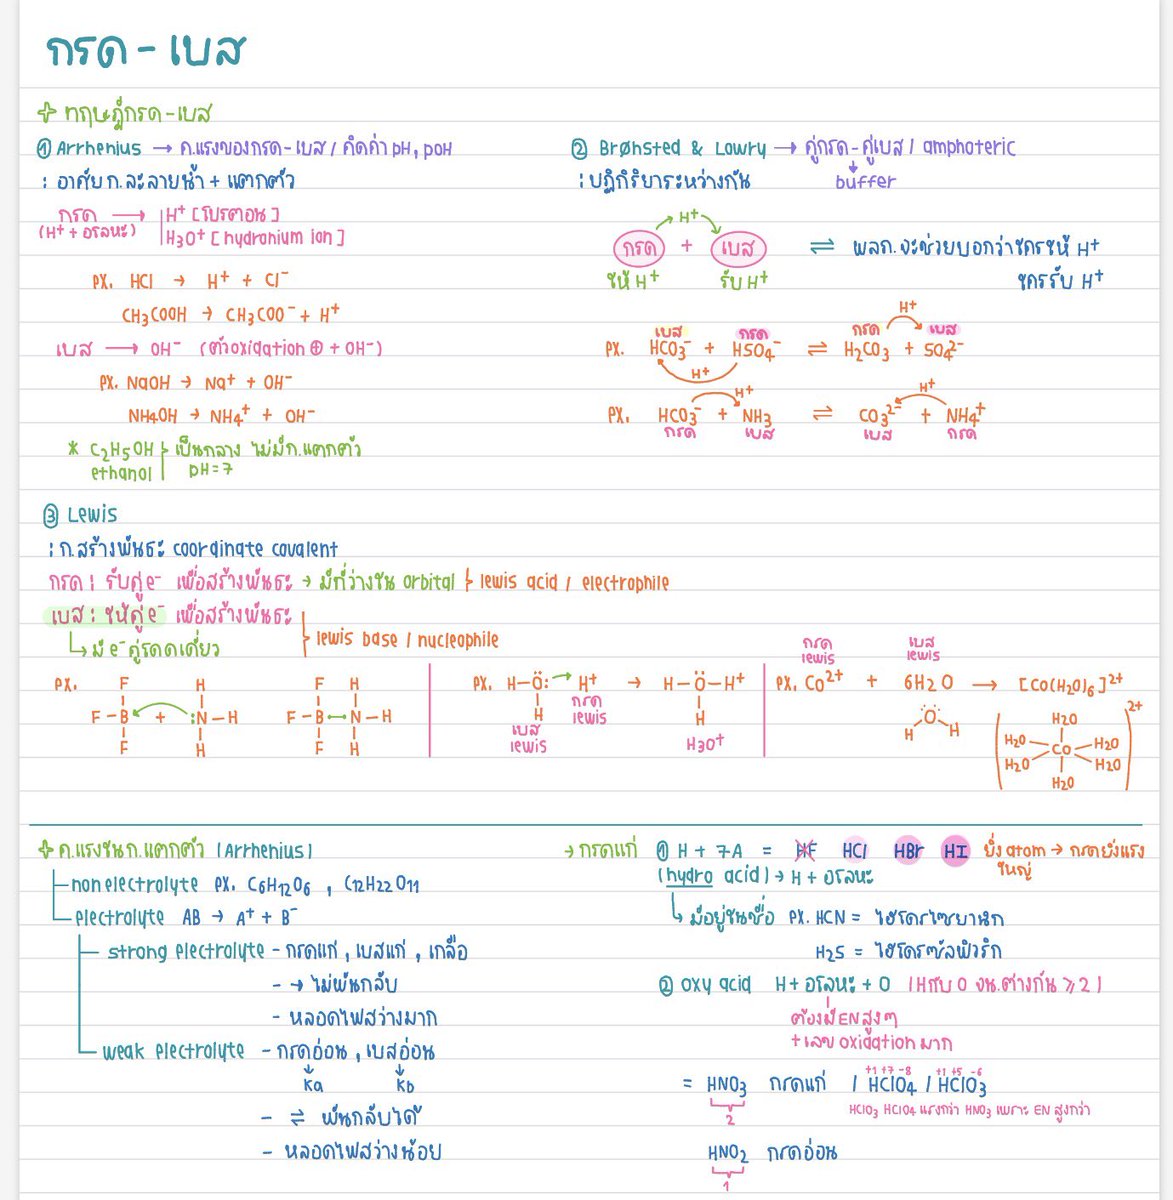 กรด - เบส
ทฤษฎีกรด-เบส
① Arrhenius → ค.แรงของกรด-เบส / คิดค่า pH, pOH
: อาศัยก.ละลายน้ำ + แตกตัว
กรด → H⁺ [โปรตอน]
(H⁺ + อโลหะ) H₃O⁺ [hydronium ion]
ex. HCl → H⁺ + Cl⁻
CH₃COOH → CH₃COO⁻ + H⁺
เบส → OH⁻ (ตัวoxidation ⊕ + OH⁻)
ex. NaOH → Na⁺ + OH⁻
NH4OH → NH₄⁺ + OH⁻
* C₂H₅OH เป็นกลาง ไม่มีก.แตกตัว
ethanol pH=7
② Brønsted & Lowry → คู่กรด-คู่เบส / amphoteric
: ปฏิกิริยาระหว่างกัน buffer
H⁺
กรด + เบส ⇌ ผลก.จะช่วยบอกว่าใครให้ H⁺
ให้ H⁺ รับ H⁺ ใครรับ H⁺
H⁺
เบส กรด กรด เบส
ex. HCO₃⁻ + HSO₄⁻ ⇌ H₂CO₃ + SO₄²⁻
H⁺
H⁺ H⁺
ex. HCO₃⁻ + NH₃ ⇌ CO₃²⁻ + NH₄⁺
กรด เบส เบส กรด
③ Lewis
: ก.สร้างพันธะ coordinate covalent
กรด : รับคู่ e⁻ เพื่อสร้างพันธะ → มีที่ว่างใน orbital lewis acid / electrophile
เบส : ให้คู่ e⁻ เพื่อสร้างพันธะ
lewis base / nucleophile
มี e⁻ คู่โดดเดี่ยว
ex. F H F H
F-B + :N-H F-B-N-H
F H F H
ex. H-Ö: H⁺ → H-Ö-H⁺
H กรด H
lewis
เบส
lewis H₃O⁺
กรด เบส
lewis lewis
ex. Co²⁺ + 6H2O → [Co(H₂O)₆]²⁺
O
H H
2+
H2O
H₂O Co H2O
H₂O H2O
H₂O
ค.แรงในก.แตกตัว (Arrhenius)
nonelectrolyte ex. C₆H₁₂O₆ , C₁₂H₂₂O₁₁
electrolyte AB → A⁺ + B⁻
strong electrolyte - กรดแก่ , เบสแก่ , เกลือ
- → ไม่ผันกลับ
- หลอดไฟสว่างมาก
weak electrolyte - กรดอ่อน , เบสอ่อน
Ka Kb
- ⇌ ผันกลับได้
- หลอดไฟสว่างน้อย
→ กรดแก่ ① H + 7A = HF HCl HBr HI ยิ่ง atom → กรดยิ่งแรง
ใหญ่
(hydro acid) → H + อโลหะ
มีอยู่ในชื่อ ex. HCN = ไฮโดรไซยานิก
H₂S = ไฮโดรซัลฟิวริก
② oxy acid H + อโลหะ + O (Hกับ O จน.ต่างกัน ≥ 2)
ต้องมี EN สูงๆ
+ เลข oxidation มาก
+1 +7 -8 +1 +5 -6
= HNO₃ กรดแก่ / HClO₄ / HClO₃
2 HClO₃ HClO₄ แรงกว่า HNO₃ เพราะ EN สูงกว่า
HNO₂ กรดอ่อน
1